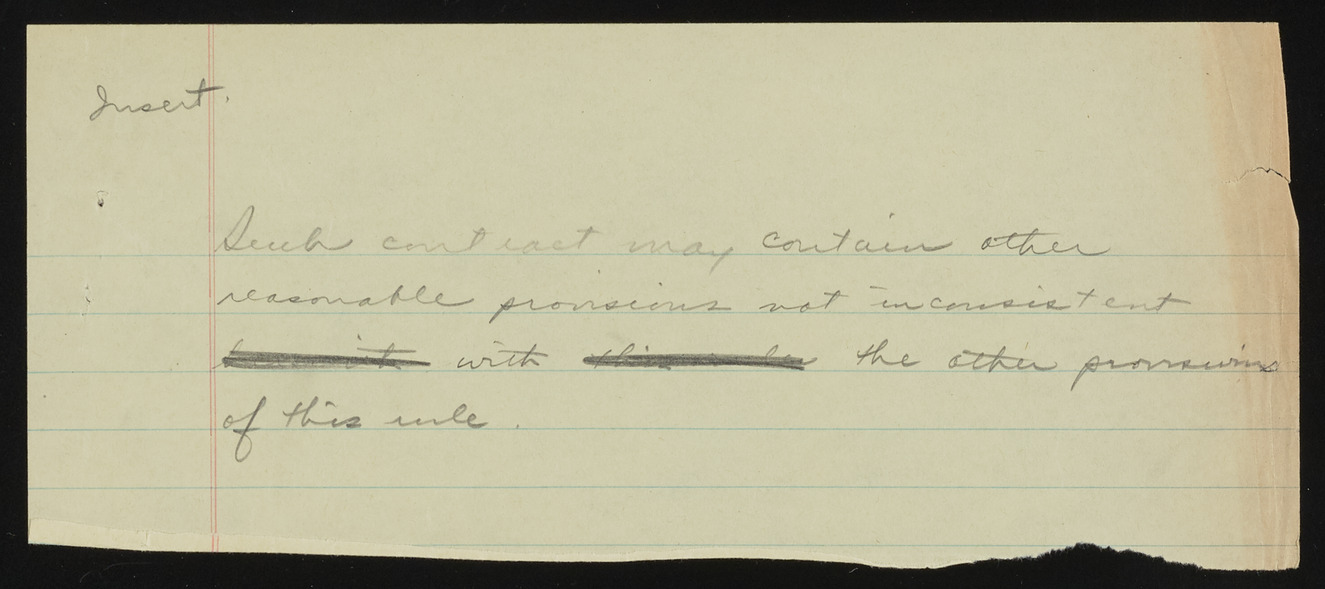 Insert.
Such contract may contain other
reasonable provisions not inconsistent
with the other provisions
of this rule.